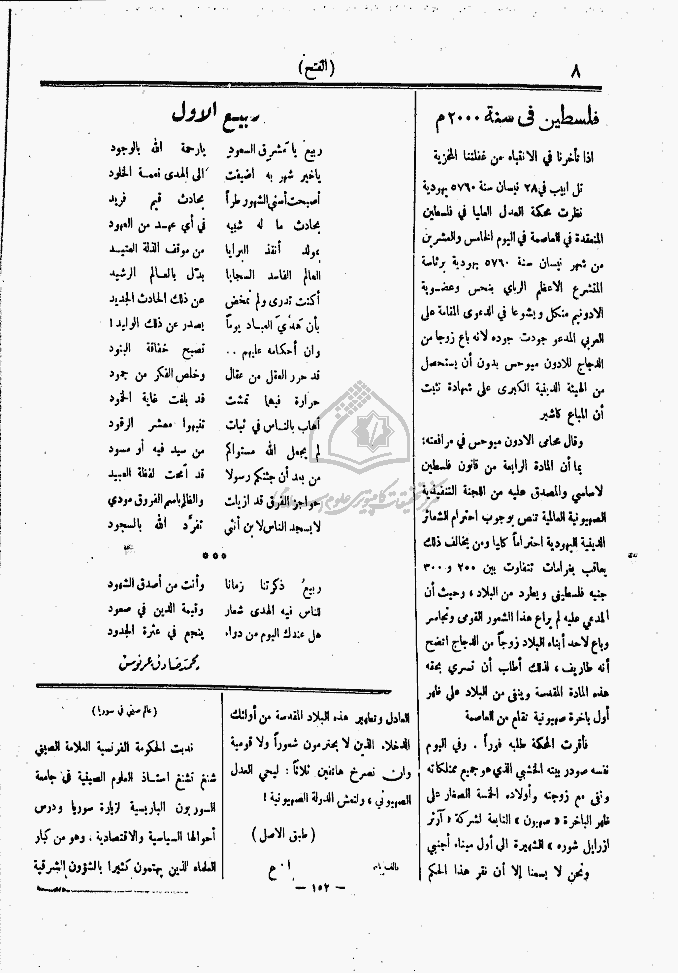 ٨
(الفتح)
فلسطين فى سنة ٢٠٠٠ م
اذا تأخرنا في الانتباه من غفلتنا المخزية
تل ابيب في ٢٨ نيسان سنة ٥٧٦٠ يهودية
نظرت محكمة العدل العليا في فلسطين
المنعقدة في العاصمة في اليوم الخامس والعشرين
من شهر نيسان سنة ٥٧٦٠ يهودية برئاسة
المتشرع الاعظم الرباي بنحس وعضوية
الادونيم منكل ويشوعا في الدعوى المقامة على
العربي المدعو جودت جوده لانه باع زوجا من
الدجاج للادون ميوحس بدون أن يستحصل
من الهيئة الدينية الكبرى على شهادة تثبت
أن المباع كاشير
وقال محامى الادون ميوحس في مرافعته:
بما أن المادة الرابعة من قانون فلسطين
لاساسي والمصدق عليه من اللجنة التنفيذية
الصهيونية العالمية تنص بوجوب احترام الشعائر
الدينية اليهودية احتراماً كليا ومن يخالف ذلك
يعاقب بغرامات تتفاوت بين ٢٥٠ و ٣٠٠
جنيه فلسطيني ويطرد من البلاد، وحيث أن
المدعي عليه لم يراع هذا الشعور القومى وتجاسر
وباع لاحد أبناء البلاد زوجاً من الدجاج اتضح
أنه طاريف، لذلك أطلب أن تسري بحقه
هذه المادة المقدسة وينفى من البلاد على ظهر
أول باخرة صهيونية تقلع من العاصمة
فأقرت المحكمة طلبه فوراً. وفي اليوم
نفسه صودر بيته الخشبي الذي هو جميع ممتلكاته
ونفى مع زوجته وأولاده الخمسة الصغار على
ظهر الباخرة « صهيون » التابعة لشركة « آرثر
ازرايل شوره » الشهيرة الى أول ميناء أجنبي
ونحن لا يسعنا إلا أن نقر هذا الحكم
العادل وتطهير هذه البلاد المقدسة من أوائك
الدخلاء الذين لا يحترمون شعوراً ولا قومية
وان نصرخ هاتفين ثلاثاً: ليحي العدل
الصهيوني، ولتعش الدولة الصهيونية!
(طبق الاصل)
ا. ع
ربيع الاول
ربيع يا مشرق السعود يارحمة الله بالوجود
ياخير شهر به اضيفت الى الهدى نعمة الخلود
أصبحت أسنى الشهور طراً بحادث قيم فريد
بحادث ما له شبيه في أي عهد من العهود
بمولد أنقذ البرايا من موقف الذلة العتيد
العالم الفاسد السجايا بدّل بالعالم الرشيد
أكنت تدرى ولم تمخض عن ذلك الحادث الجديد
بأن هدي العباد يوماً يصدر عن ذلك الوليد!
وان أحكامه عليهم .. تصبح خفاقة البنود
قد حرر العقل من عقال وخلص الفكر من جمود
حرارة فيها تمشت قد بلغت غاية الخمود
أهاب بالناس في ثبات تنبهوا معشر الرقود
لم يجعل الله مستواكم من سيد فيه أو مسود
من بعد أن جئتكم رسولا قد أمحت لفظة العبيد
حواجز الفرق قد ازيلت والظالم باسم الفروق مودي
لا يسجد الناس لابن أنثى تفرَّد الله بالسجود
***
ربيعُ ذكرتنا زمانا وأنت من أصدق الشهود
للناس فيه الهدى شعار وقيمة الدين في صعود
هل عندك اليوم من دواء ينجع في عثرة الجدود
محمد صادق عرنوس
(عالم صيني في سوريا)
ندبت الحكومة الفرنسية العلامة الصيني
شنغ تشنغ استاذ العلوم الصينية في جامعة
السوربون الباريسية لزيارة سوريا ودرس
أحوالها السياسية والاقتصادية. وهو من كبار
العلماء الذين يهتمون كثيرا بالشؤون الشرقية
— ١٥٢ —